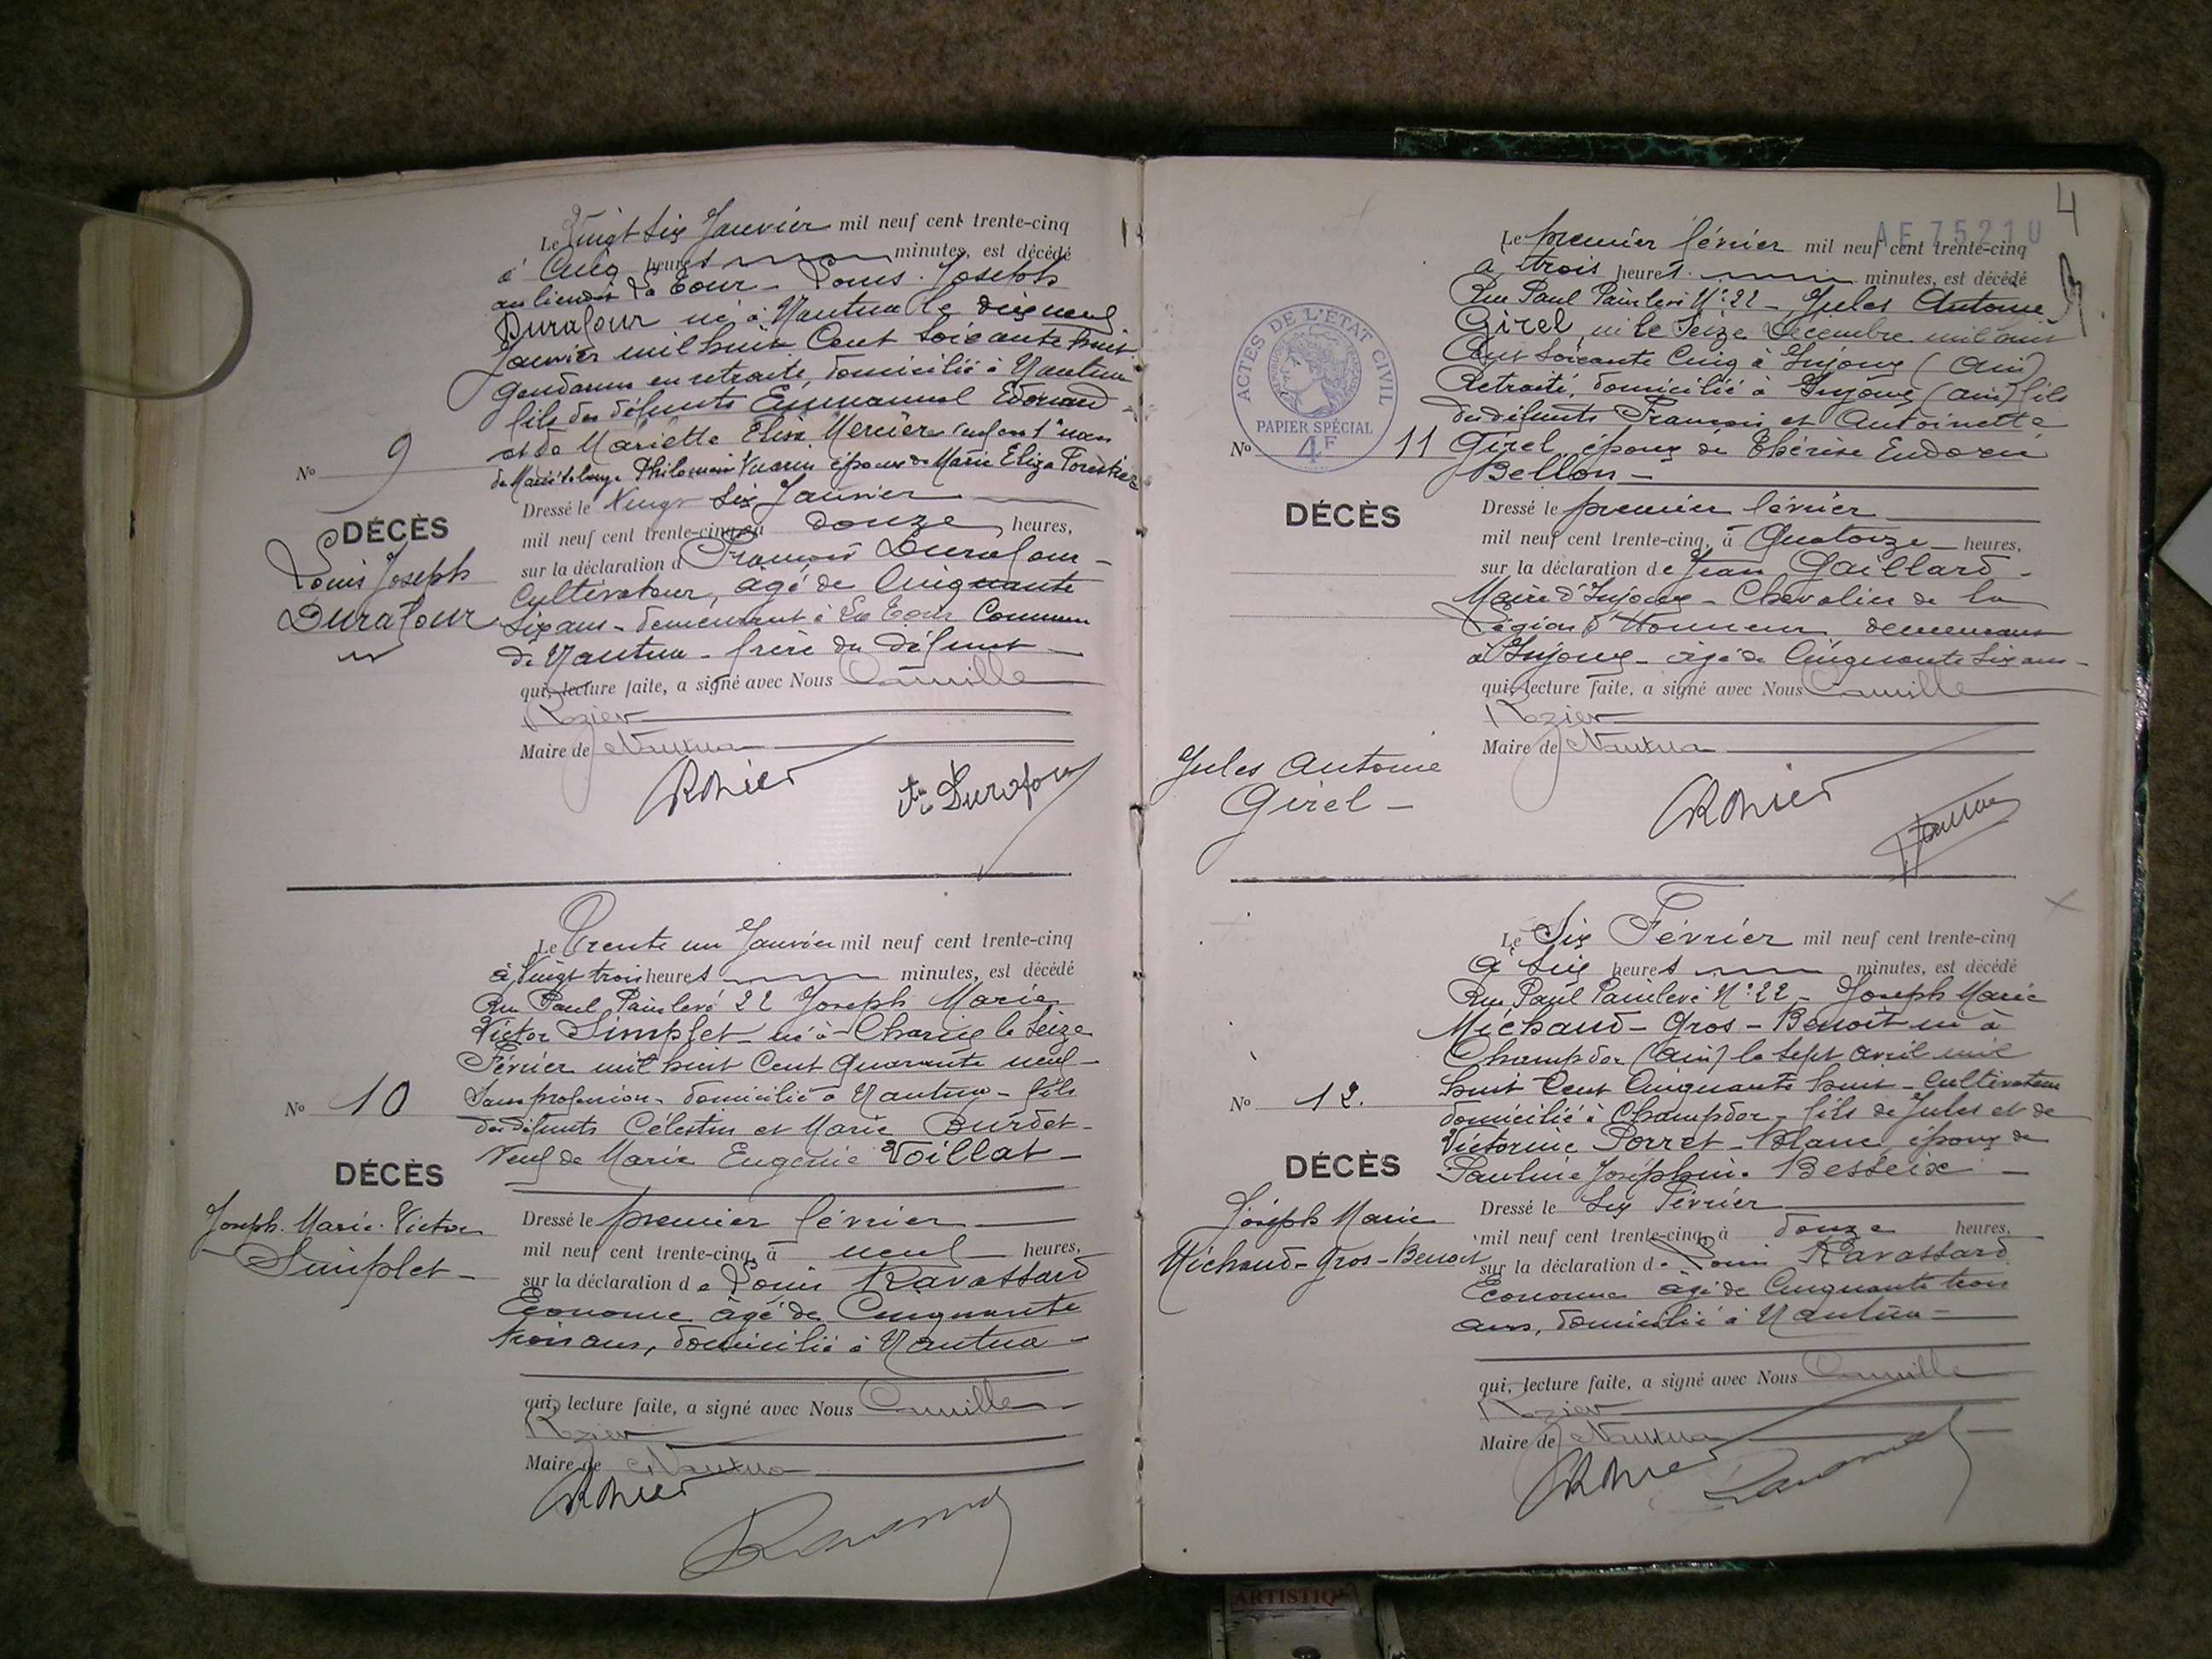 Le Vingt Six Janvier mil neuf cent trente-cinq
à Cinq heures minutes, est décédé
au lieudit La Cour - Louis Joseph
Durafour né à Nantua le dix neuf
Janvier mil huit Cent Soixante huit
gendarme en retraite, domicilié à Nantua
fils des défunts Emmanuel Edouard
et de Mariette Elisa Mercier
Philomène Vuarin époux de Marie Eliza Forestier
No 9
DÉCÈS
Louis Joseph
Durafour
Dressé le Vingt Six Janvier
mil neuf cent trente-cinq à douze heures,
sur la déclaration d François Durafour -
Cultivateur, âgé de Cinquante
Six ans - demeurant à La Cour Commune
de Nantua - frère du défunt -
qui, lecture faite, a signé avec Nous Camille
Rozier
Maire de Nantua
Rozier
Durafour
Le Trente un Janvier mil neuf cent trente-cinq
à Vingt trois heures minutes, est décédé
Rue Paul Painlevé 22 Joseph Marie
Victor Simplet - né à Charix le Seize
Février mil huit Cent quarante neuf -
Sans profession - domicilié à Nantua - fils
des défunts Célestin et Marie Burdet -
Veuf de Marie Eugénie Voillat -
No 10
DÉCÈS
Joseph. Marie. Victor
Simplet -
Dressé le premier février
mil neuf cent trente-cinq, à neuf heures,
sur la déclaration de Louis Ravassard
Econome âgé de Cinquante
trois ans, domicilié à Nantua -
qui, lecture faite, a signé avec Nous Camille
Rozier
Maire de Nantua
Rozier
4
AE 75210
Le premier février mil neuf cent trente-cinq
à trois heures minutes, est décédé
Rue Paul Painlevé N° 22 - Jules Antoine
Girel né le Seize Décembre mil huit
Cent Soixante Cinq à Injoux (Ain)
Retraité, domicilié à Injoux (Ain) fils
des défunts François et Antoinette
Girel époux de Thérèse Eudoxie
Bellon -
ACTES DE L'ÉTAT CIVIL
PAPIER SPÉCIAL
4F
No 11
DÉCÈS
Jules Antoine
Girel -
Dressé le premier février
mil neuf cent trente-cinq, à Quatorze heures,
sur la déclaration de Jean Gaillard -
Maire d'Injoux - Chevalier de la
Légion d'Honneur demeurant
à Injoux - âgé de Cinquante Six ans -
qui, lecture faite, a signé avec Nous Camille
Rozier
Maire de Nantua
Rozier
Le Six Février mil neuf cent trente-cinq
à Six heures minutes, est décédé
Rue Paul Painlevé N° 22 - Joseph Marie
Michaud - Gros - Benoit né à
Champdor (Ain) le Sept avril mil
huit Cent Cinquante huit - Cultivateur
domicilié à Champdor - fils de Jules et de
Victorine Porret - Blanc, époux de
Pauline Joséphine Besseix -
No 12.
DÉCÈS
Joseph Marie
Michaud - Gros - Benoit
Dressé le Six Février
mil neuf cent trente-cinq, à douze heures,
sur la déclaration de Louis Ravassard
Econome âgé de Cinquante trois
ans, domicilié à Nantua -
qui, lecture faite, a signé avec Nous Camille
Rozier
Maire de Nantua
Rozier
ARTISTIQ